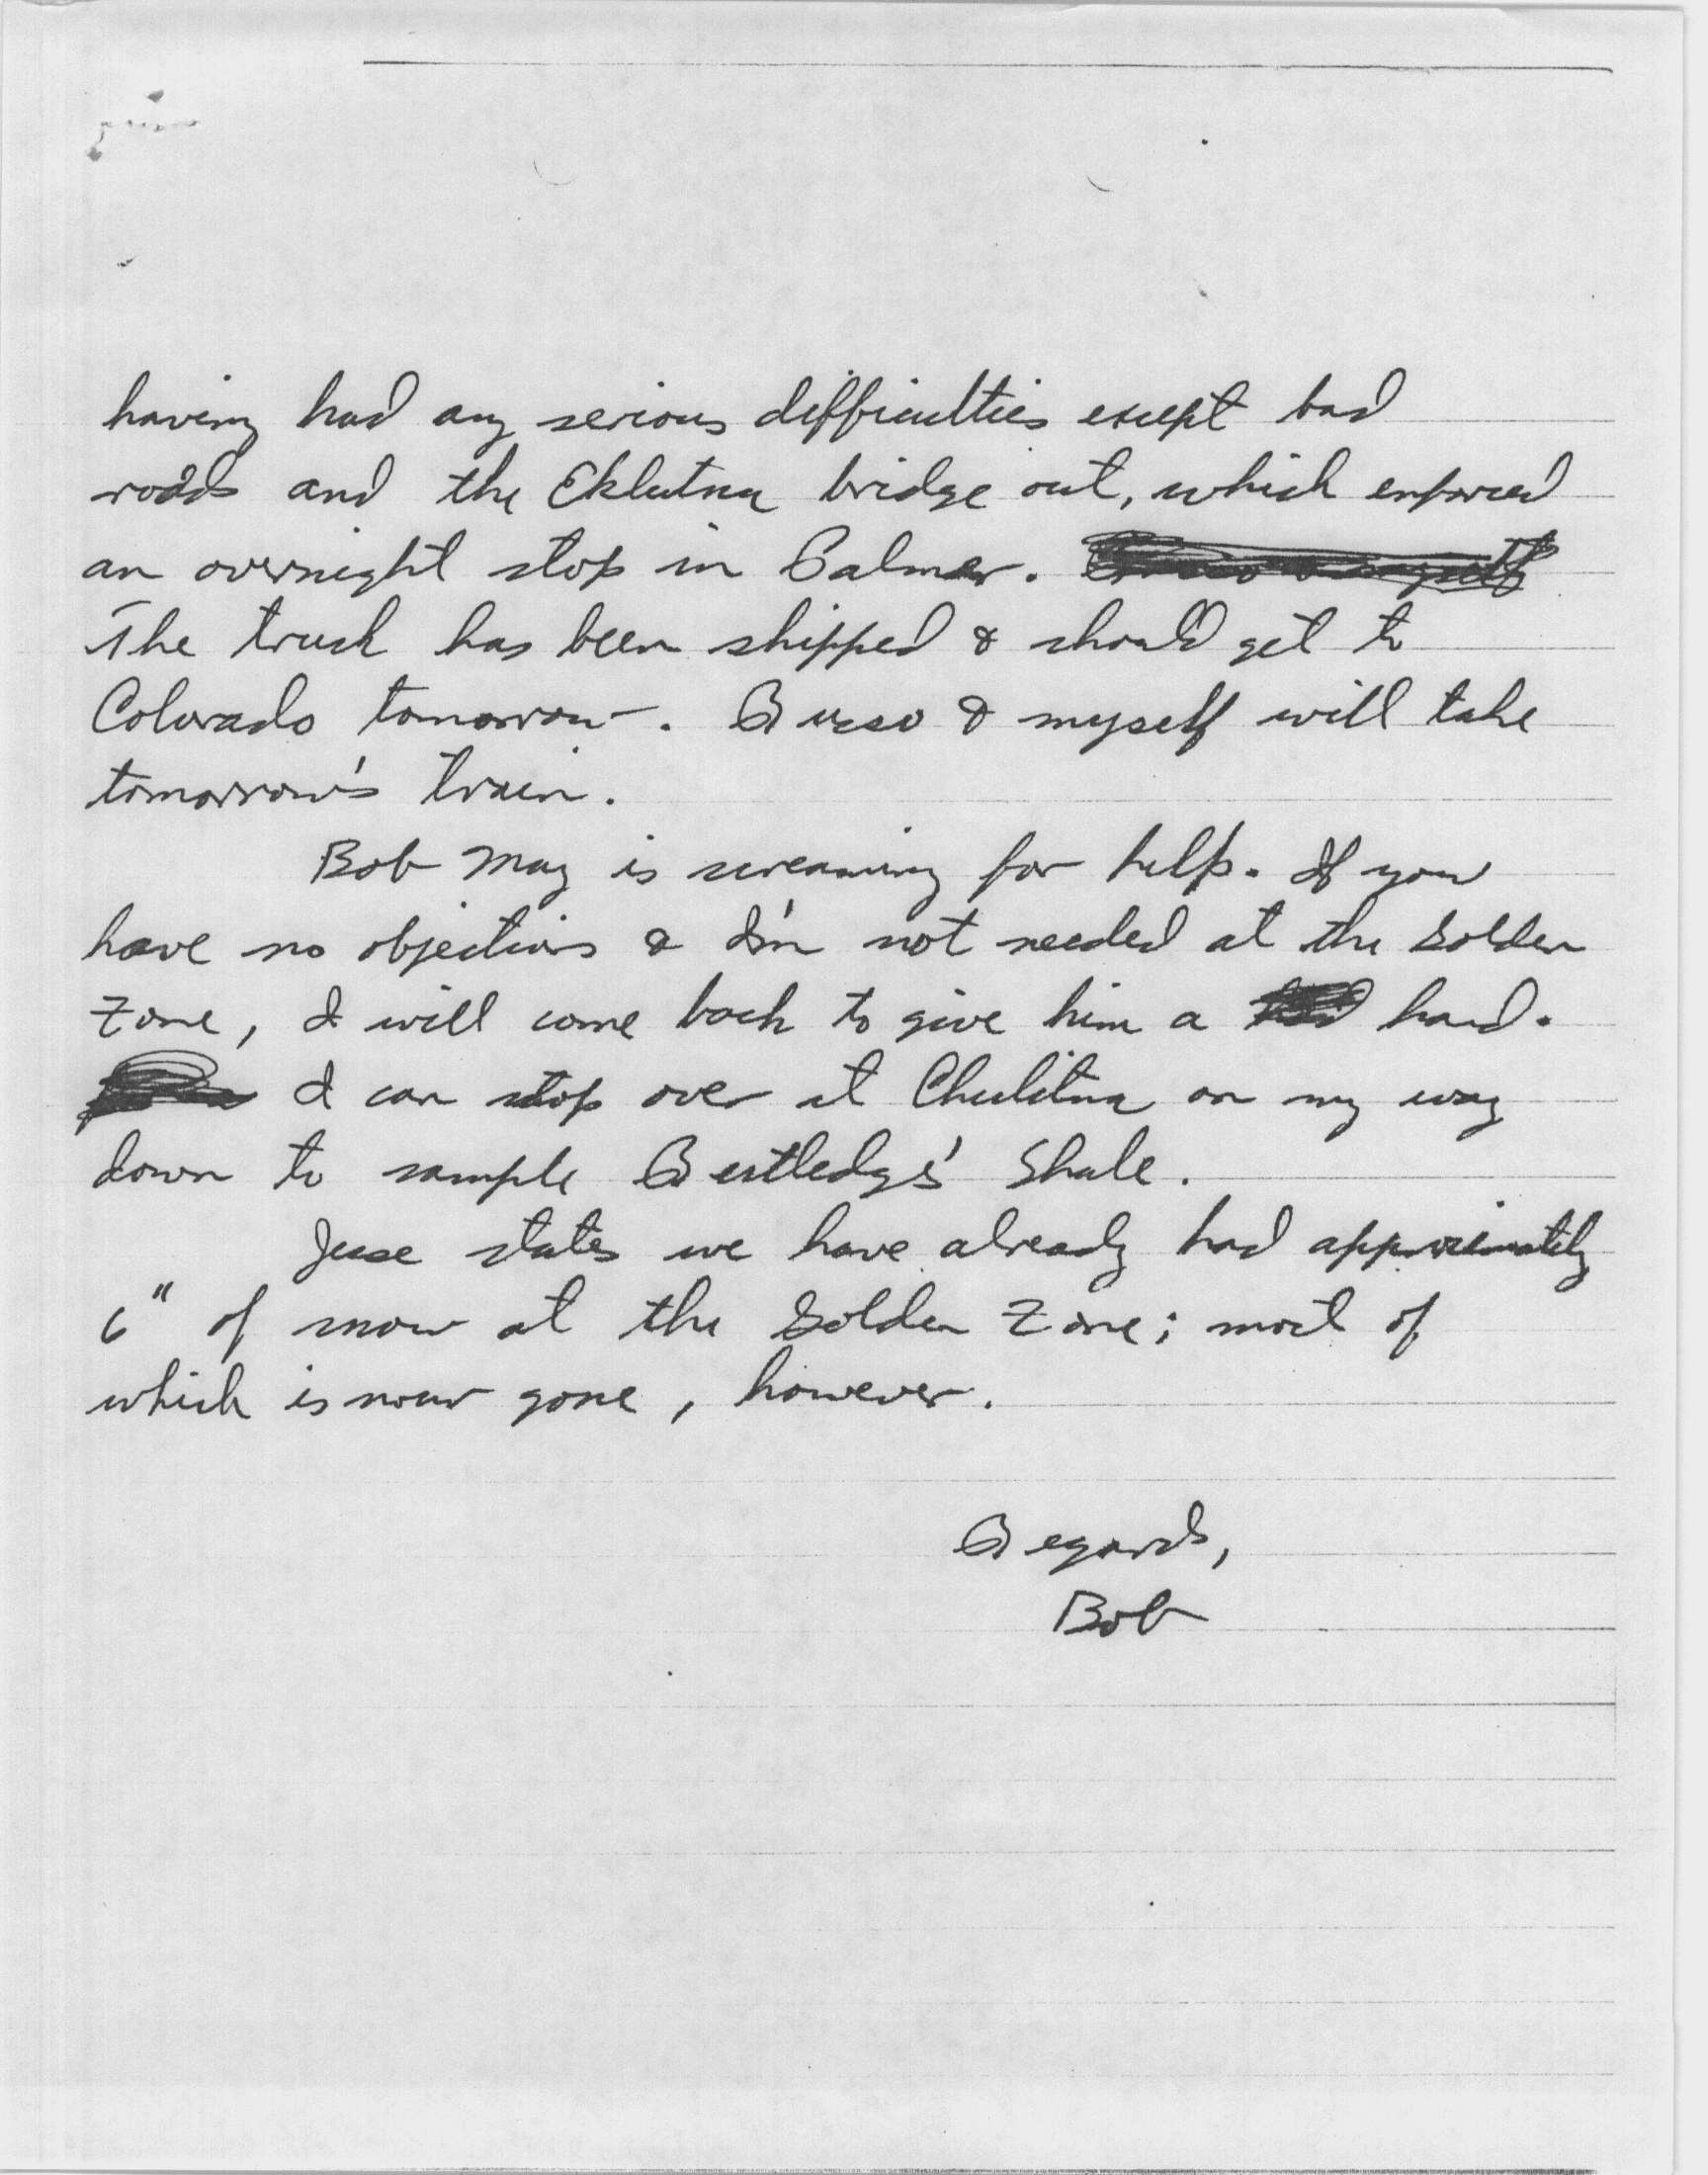 having had any serious difficulties except bad
roads and the Eklutna bridge out, which enforced
an overnight stop in Palmer.
The truck has been shipped & should get to
Colorado tomorrow. Russo & myself will take
tomorrow's train.
Bob May is screaming for help. If you
have no objections & I'm not needed at the Golden
Zone, I will come back to give him a hand.
I can stop over at Chulitna on my way
down to sample Rutledge's Shale.
Jesse states we have already had approximately
6" of snow at the Golden Zone; most of
which is now gone, however.
Regards,
Bob